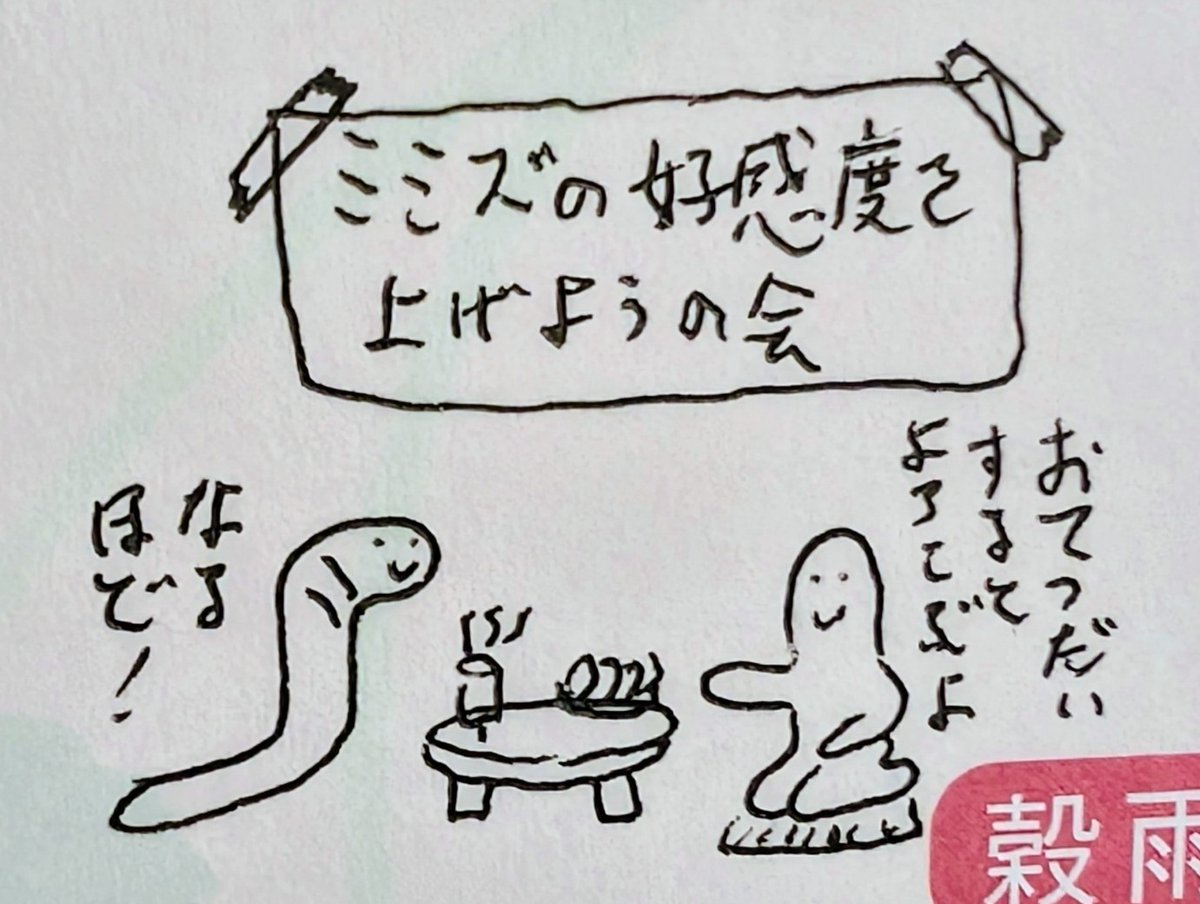 ミミズの好感度を
上げようの会
おてつだい
すると
よろこぶよ
なる
ほど!
穀雨